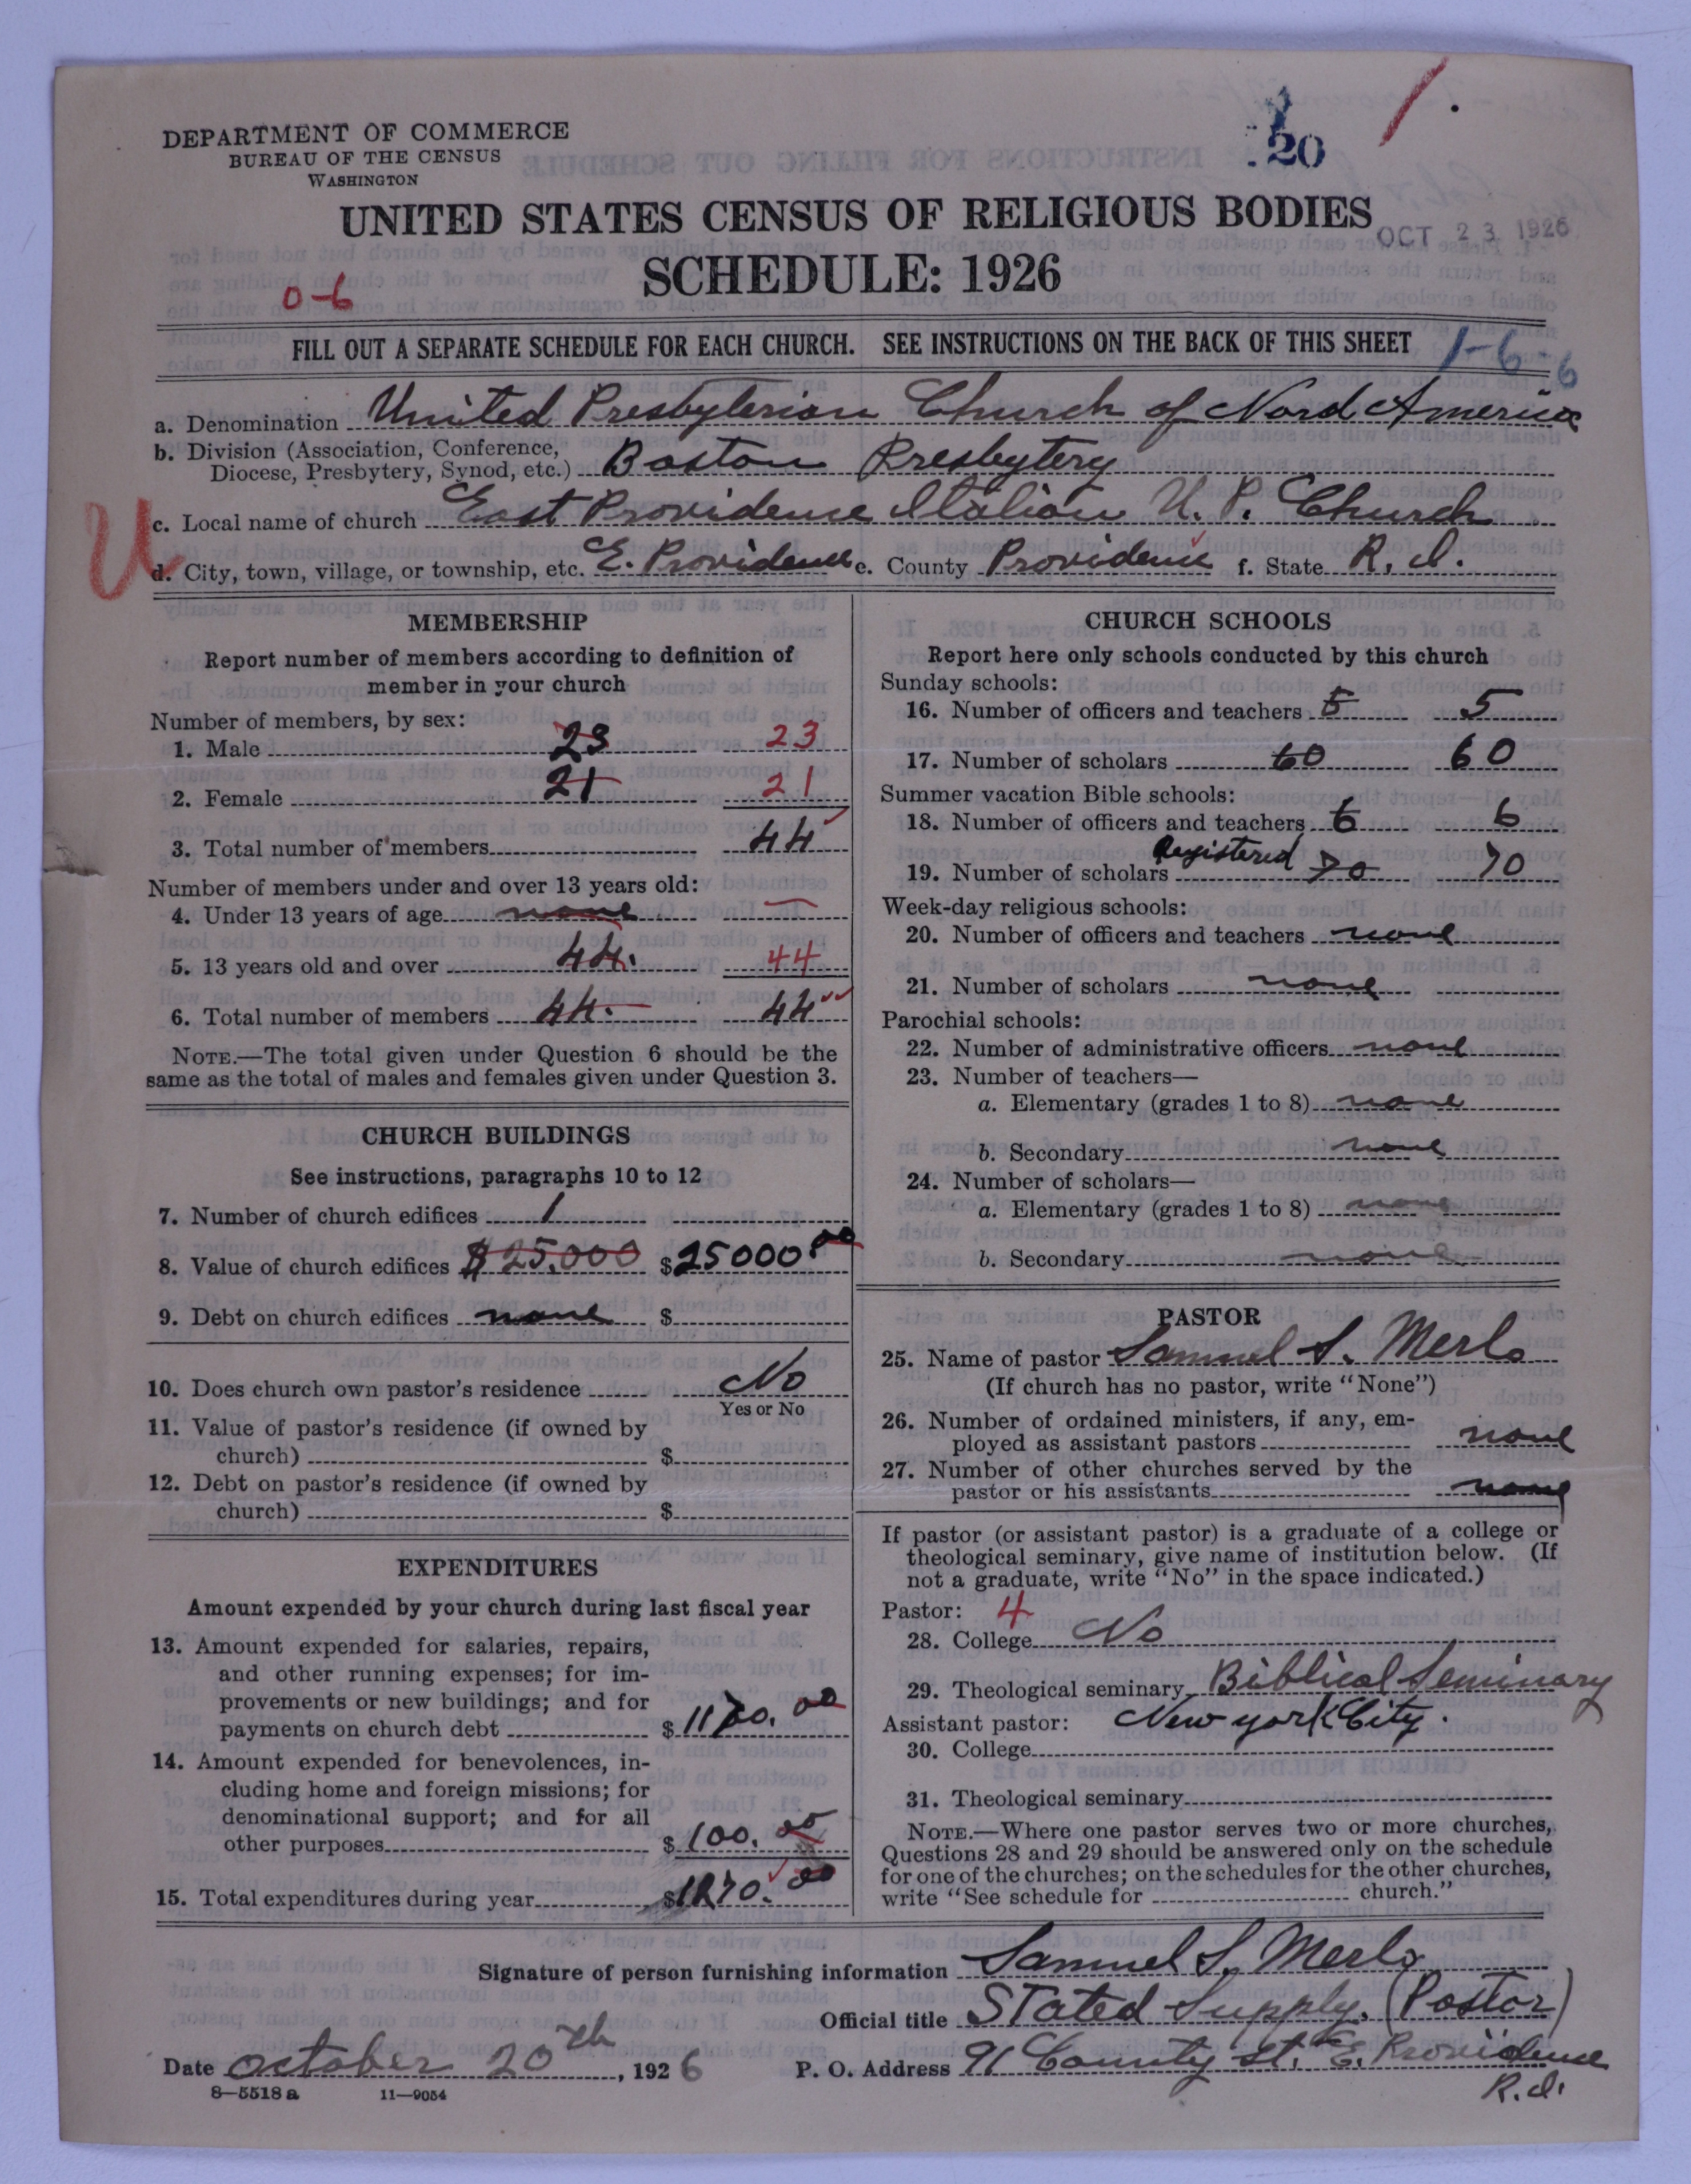 DEPARTMENT OF COMMERCE
BUREAU OF THE CENSUS
WASHINGTON
20
UNITED STATES CENSUS OF RELIGIOUS BODIES
OCT 23 1926
SCHEDULE: 1926
0-6
FILL OUT A SEPARATE SCHEDULE FOR EACH CHURCH. SEE INSTRUCTIONS ON THE BACK OF THIS SHEET
1-6-6
a. Denomination United Presbyterian Church of Nord America
b. Division (Association, Conference,
Diocese, Presbytery, Synod, etc.) Boston Presbytery
U
c. Local name of church East Providence Italian U. P. Church
d. City, town, village, or township, etc. E. Providence e. County Providence f. State R. I.
MEMBERSHIP
Report number of members according to definition of
member in your church
Number of members, by sex:
1. Male 23 23
2. Female 21 21
3. Total number of members 44
Number of members under and over 13 years old:
4. Under 13 years of age none —
5. 13 years old and over 44. 44
6. Total number of members 44. 44
NOTE.—The total given under Question 6 should be the
same as the total of males and females given under Question 3.
CHURCH BUILDINGS
See instructions, paragraphs 10 to 12
7. Number of church edifices 1
8. Value of church edifices $25.000 $25000.00
9. Debt on church edifices none $
10. Does church own pastor's residence No
Yes or No
11. Value of pastor's residence (if owned by
church) $
12. Debt on pastor's residence (if owned by
church) $
EXPENDITURES
Amount expended by your church during last fiscal year
13. Amount expended for salaries, repairs,
and other running expenses; for im-
provements or new buildings; and for
payments on church debt $1170.00
14. Amount expended for benevolences, in-
cluding home and foreign missions; for
denominational support; and for all
other purposes $100.00
15. Total expenditures during year $1270.00
CHURCH SCHOOLS
Report here only schools conducted by this church
Sunday schools:
16. Number of officers and teachers 5 5
17. Number of scholars 60 60
Summer vacation Bible schools:
18. Number of officers and teachers 6 6
Registered
19. Number of scholars 70 70
Week-day religious schools:
20. Number of officers and teachers none
21. Number of scholars none
Parochial schools:
22. Number of administrative officers none
23. Number of teachers—
a. Elementary (grades 1 to 8) none
b. Secondary none
24. Number of scholars—
a. Elementary (grades 1 to 8) none
b. Secondary none
PASTOR
25. Name of pastor Samuel S. Merlo
(If church has no pastor, write "None")
26. Number of ordained ministers, if any, em-
ployed as assistant pastors none
27. Number of other churches served by the
pastor or his assistants none
If pastor (or assistant pastor) is a graduate of a college or
theological seminary, give name of institution below. (If
not a graduate, write "No" in the space indicated.)
Pastor: 4
28. College No
29. Theological seminary Biblical Seminary
Assistant pastor: New York City.
30. College
31. Theological seminary
NOTE.—Where one pastor serves two or more churches,
Questions 28 and 29 should be answered only on the schedule
for one of the churches; on the schedules for the other churches,
write "See schedule for church."
Signature of person furnishing information Samuel S. Merlo
Official title Stated Supply. (Pastor)
Date October 20th, 1926 P. O. Address 91 County St. E. Providence
R.I.
8—5518a 11—9054